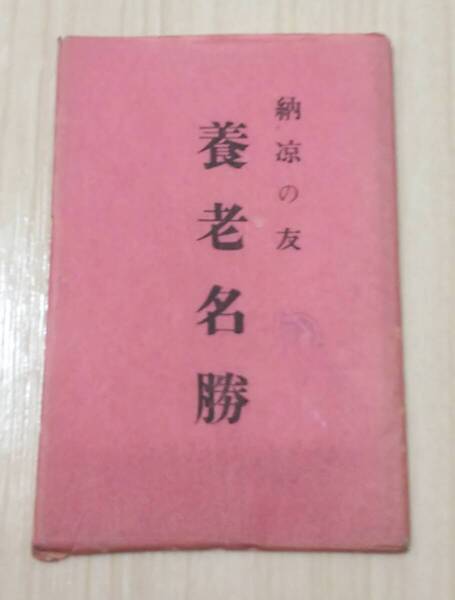 納涼の友
養老名勝